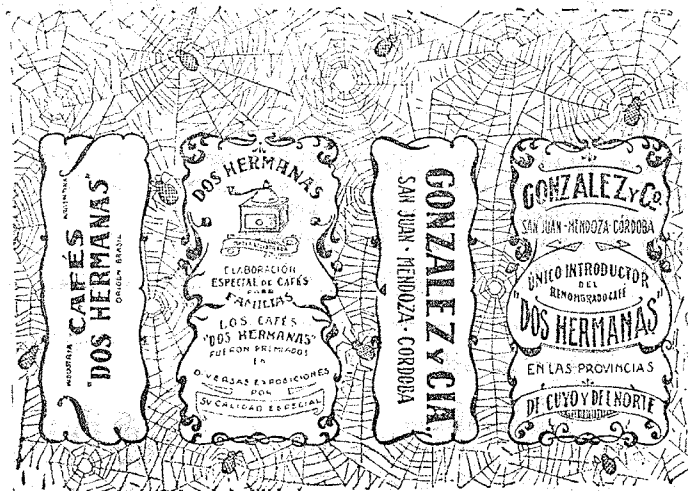 INDUSTRIA ARGENTINA
CAFÉS
"DOS HERMANAS"
ORIGEN BRASIL
DOS HERMANAS
ELABORACIÓN
ESPECIAL DE CAFÉS
PARA
FAMILIAS
LOS CAFÉS
"DOS HERMANAS"
FUERON PREMIADOS
EN
DIVERSAS EXPOSICIONES
POR
SU CALIDAD ESPECIAL
GONZALEZ Y CIA
SAN JUAN - MENDOZA - CORDOBA
GONZALEZ Y Co.
SAN JUAN - MENDOZA - CÓRDOBA
ÚNICO INTRODUCTOR
DEL
RENOMBRADO CAFÉ
"DOS HERMANAS"
EN LAS PROVINCIAS
DE CUYO Y DEL NORTE